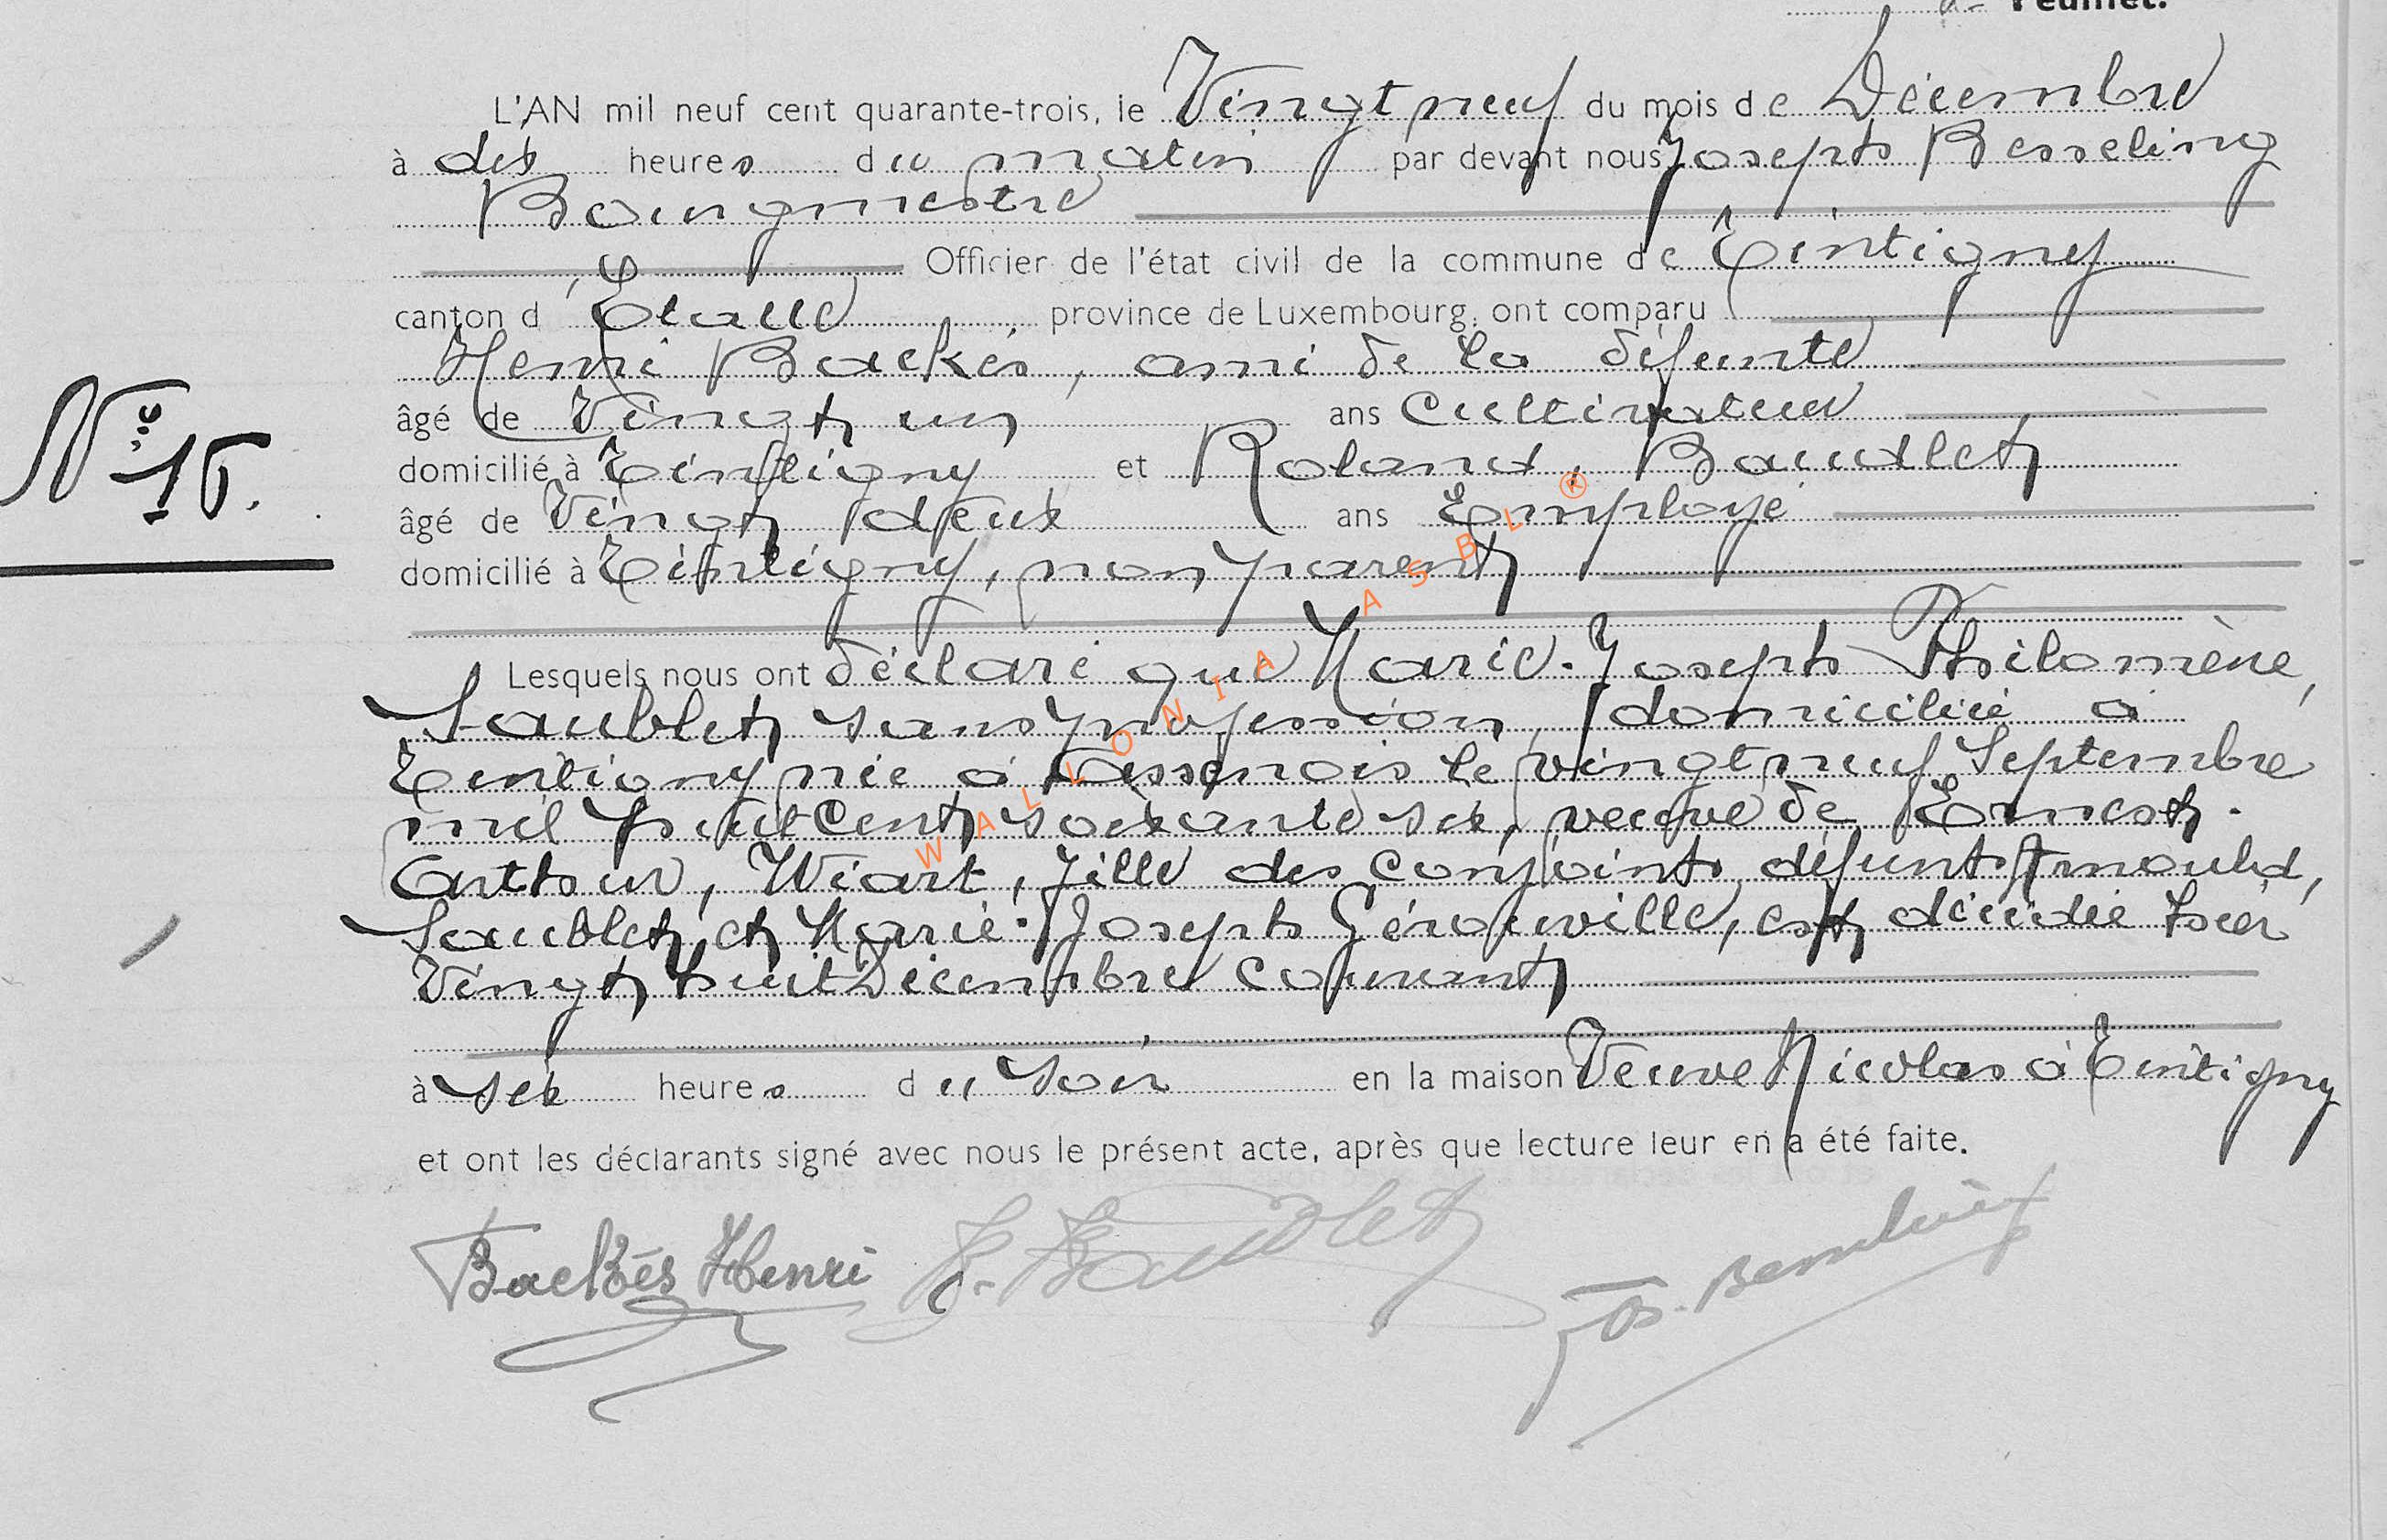 Feuillet.
L'AN mil neuf cent quarante-trois, le Vingt neuf du mois de Décembre
à dix heures du matin par devant nous Joseph Besseling
Bourgmestre
Officier de l'état civil de la commune de Tintigny
canton d'Etalle, province de Luxembourg, ont comparu
Henri Backès, ami de la défunte
âgé de Vingt un ans Cultivateur
domicilié à Tintigny et Roland, Baudlet
âgé de Vingt deux ans Employé
domicilié à Tintigny, non parent
Lesquels nous ont déclaré que Marie-Joseph Philomène,
Saublet sans profession, domiciliée à
Tintigny née à Assenois le vingt neuf Septembre
mil huit Cent soixante six, veuve de Ernest-
Arthur, Wiart, fille des conjoints défunts Arnould,
Saublet et Marie-Joseph Gérouville, est décédée hier
Vingt huit Décembre courant
à six heures du soir en la maison Veuve Nicolas à Tintigny
et ont les déclarants signé avec nous le présent acte, après que lecture leur en a été faite.
N° 15.
Backès Henri R. Baudlet Jos. Besseling
WALLONIA ASBL ®